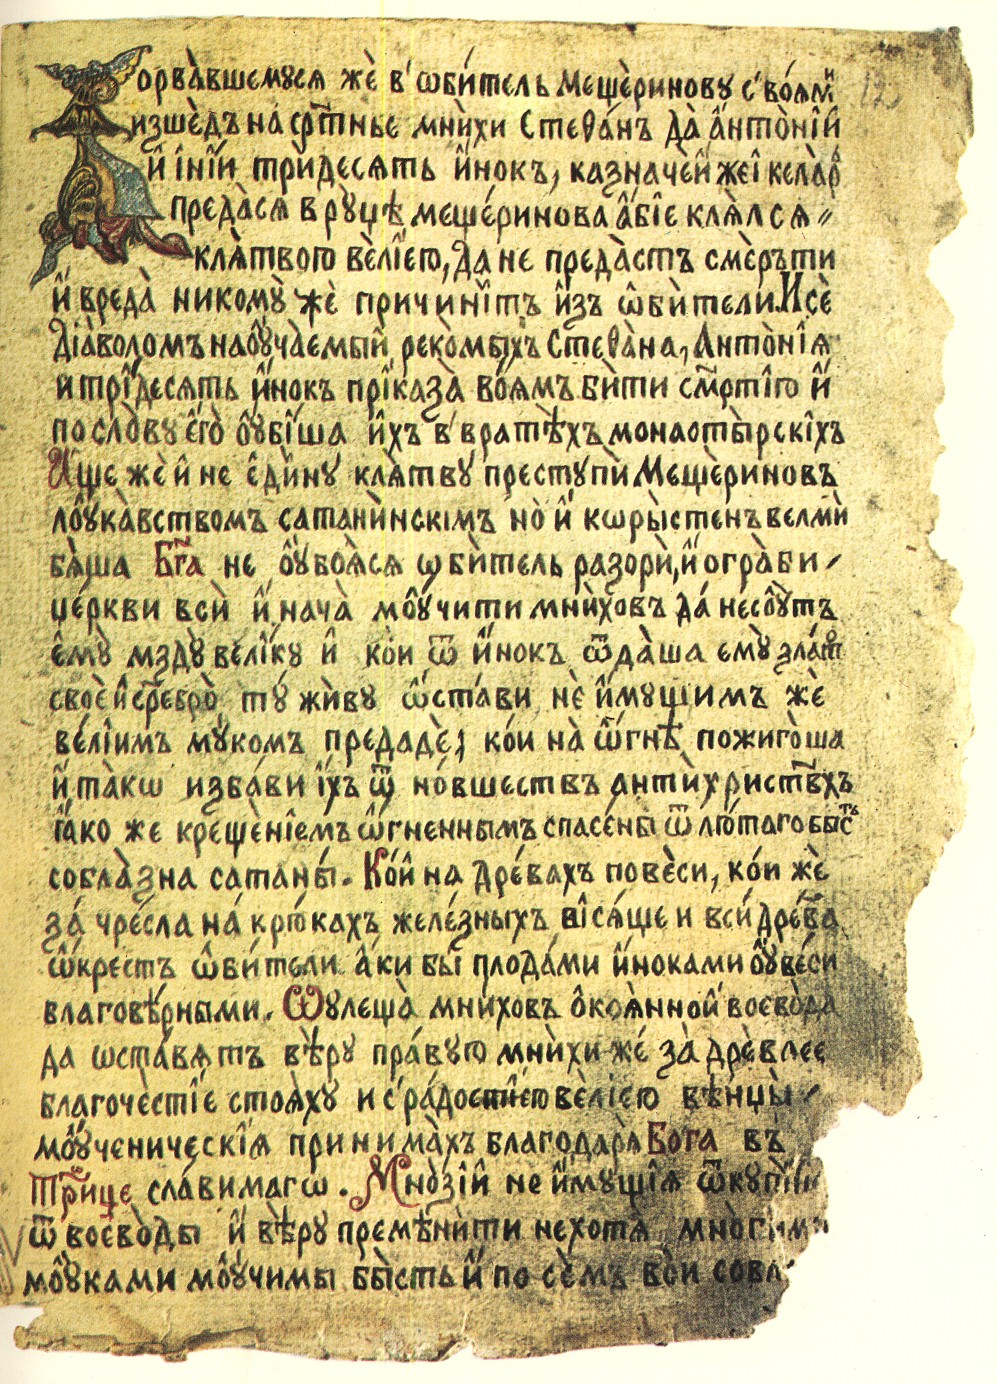 Дорва̀вшемуся жѐ в' ѡби́тель Мещѐринову с' во́ями
изшѐдъ на срт҃нье мни̑хи Стеѳа́нъ да̀ а҆нто̀нїй
и҆ і҆нїи три̑десять и҆нокъ, казначей же і҆ келарь
преда̀ся в ру́цѣ меще́ринова а҆бїе кля̀лся〃
кля̀твою вѐлїею, да не преда̀стъ смѐръти
и҆ вреда̀ никому̀ же̑ причини̑тъ и҆зъ ѡ҆би̑тели. И сѐ
дїа̀воломъ наоу҆ча̀емый, реко̀мыхъ Стеѳа̀на, Анто̀нїя
и трїдесять и҆нокъ прїказа̀ во́ямъ би̑ти см҃ртїю и҆
по сло̀ву є҆го̀ оу҆бі̑ша и҆хъ в' вратѣхъ монасты̀рскїхъ
Аще же и҆ не є҆ди̑ну кля̀тву преступѝ Мещѐриновъ
лоу҆ка̀вствомъ сатани̑нскїмъ но̀ и҆ кѡры̀стенъ велмѝ
бя̀ша Бг҃а не оу҆боя̀ся ѡби̑тель разори̑, и҆ огра̀би ⸝
це́ркви всѝ и҆ нача̀ моу҆чити мни̑ховъ да́ несоу҆тъ
є҆му̀ мзду̀ вели̑ку и҆ ко̀и ѿ и҆нокъ ѿда̀ша ему̀ зла́то
своѐ и҆ сребро̀ ту́ жи̑ву ѡ҆ста́ви не̑ и҆мущимъ же̑
ве́лїимъ му̀комъ предадѐ; ко́и на̀ ѡ҆гнѣ пожиго̀ша
и҆ та̀кѡ изба́ви і҆хъ ѿ но́вшествъ анти̑христвыхъ
ꙗ҆ко же крещѐнїемъ ѡ҆гненнымъ спасе́ны ѿ лю́таго бысть
собла̀зна сатаны̀. Ко́й на дрѐвахъ повѐси, ко́и же̑
за́ чре́сла на́ крюкахъ желѐзныхъ вїся́ще и всѝ дрѐва
ѡ҆крестъ ѡ҆би̑тели а҆ки бы̀ плода́ми и҆ноками оу҆вѐси
благовѣрными. Ѡулеща̀ мни̑ховъ ѻкоя̀нной воево̀да
да ѡста́вятъ вѣру пра́вую мни̑хи же за̀ дрѐвлее
благочѐстїе стоя̀ху и с' ра́достїею вѐлїею вѣнцы̀ ⸝
моу҆ченическїя принима̀хъ благодаря Бога въ
Тр҃оице сла́вимагѡ. Мно́зїй не и҆мущїя ѿкупи̑ти
ѿ воево̀ды и҆ вѣру премѣни̑ти не хотя̀
моу҆ками моу҆чимы бы̀сть и҆ по сѐмъ во̀и